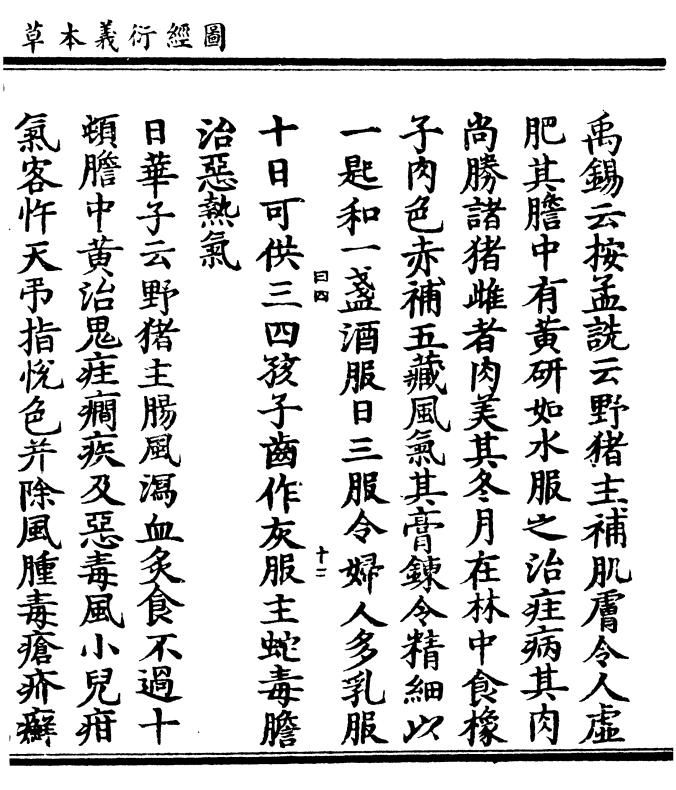 圖經衍義本草
禹錫云按孟詵云野猪主補肌膚令人虛
肥其膽中有黃研如水服之治疰病其肉
尚勝諸猪雌者肉美其冬月在林中食橡
子肉色赤補五藏風氣其膏鍊令精細以
一匙和一盞酒服日三服令婦人多乳服
十日可供三四孩子齒作灰服主蛇毒膽
治惡熱氣
日華子云野猪主腸風瀉血炙食不過十
頓膽中黃治鬼疰癇疾及惡毒風小兒疳
氣客忤天弔指悅色并除風腫毒瘡疥癬
十二